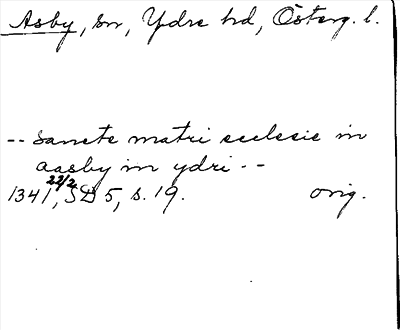 Asby, sn, Ydre hd, Österg. l.
-- Sancte matri ecclesie in
aasby in ydri --
1341 22/2, SD 5, s. 19. orig.